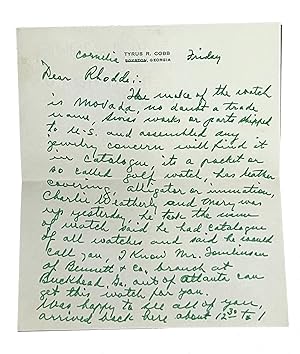 TYRUS R. COBB
Cornelia Friday
ROYSTON, GEORGIA
Dear Rhodds:
The make of the watch
is Movado, no doubt a trade
name, Swiss works or parts shipped
to U.S. and assembled any
jewelry concern will find it
in catalogue, it a pocket or
so called golf watch, has leather
covering, alligator or immitation,
Charlie Weatherly and Mary was
up yesterday, he took the name
of watch said he had catalogue
of all watches and said he would
call you, I know Mr. Tomlinson
of Bennett & Co. branch at
Buckhead, Ga. out of Atlanta can
get this watch for you.
Was happy to see all of you,
arrived back here about 12:30 to 1